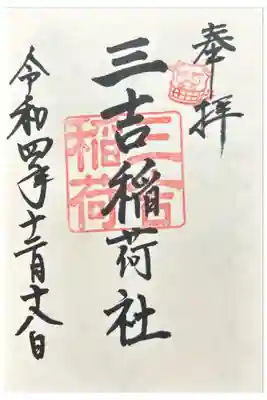 奉拝
三吉稲荷社
三吉稲荷
令和四年十二月十八日